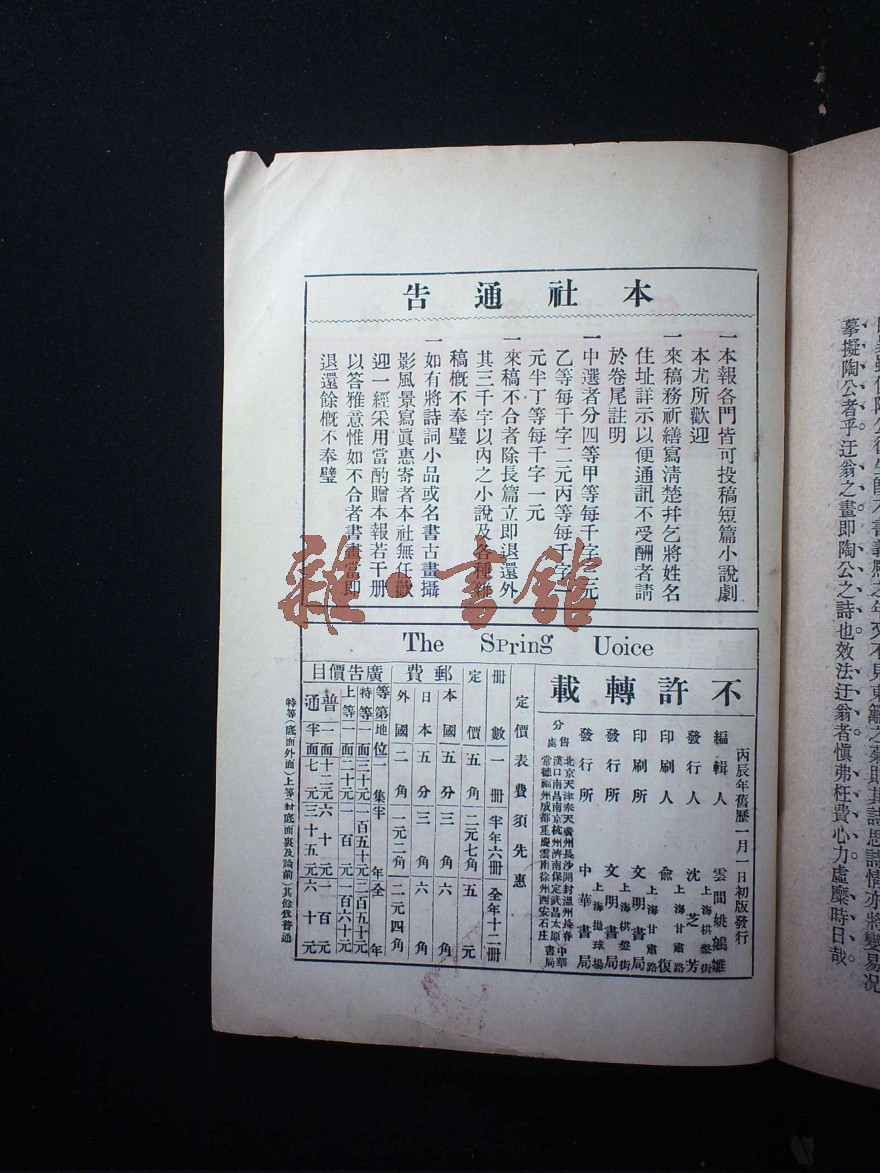 本社通告
一本報各門皆可投稿短篇小說劇
本尤所歡迎
一來稿務祈繕寫清楚幷乞將姓名
住址詳示以便通訊不受酬者請
於卷尾註明
一中選者分四等甲等每千字三元
乙等每千字二元丙等每千字一
元半丁等每千字一元
一來稿不合者除長篇立即退還外
其三千字以內之小說及各種雜
稿概不奉璧
一如有將詩詞小品或名書古畫攝
影風景寫眞惠寄者本社無任歡
迎一經采用當酌贈本報若干册
以答雅意惟如不合者書畫當即
退還餘概不奉璧
The Spring Uoice
不許轉載
丙辰年舊歷一月一日初版發行
編輯人 雲間姚鵷雛
發行人 上海棋盤街 沈芝芳
印刷人 上海甘肅路 兪復
印刷所 上海甘肅路 文明書局
發行所 上海棋盤街 文明書局
發行所 上海抛球場 中華書局
分售處 北京天津奉天廣州長沙開封溫州長春
漢口南昌南京杭州濟南保定武昌太原
常德福州成都重慶雲南徐州西安石庄
中華書局
定價表費須先惠
册數 一册 半年六册 全年十二册
定價 五角 二元七角 五元
郵費
本國 五分 三角 六角
日本 五分 三角 六角
外國 二角 一元二角 二元四角
廣告價目
等第 地位 一集 半年 全年
特等 一面 三十元 一百五十元 二百五十元
上等 一面 二十元 一百元 一百六十元
普通 一面 十二元 六十元 一百元
半面 七元 三十五元 六十元
特等(底面外面)上等(封底面裏及論前)其餘爲普通
雜·書館
摹擬陶公者乎迂翁之畫即陶公之詩也效法迂翁者愼弗枉費心力虛糜時日哉